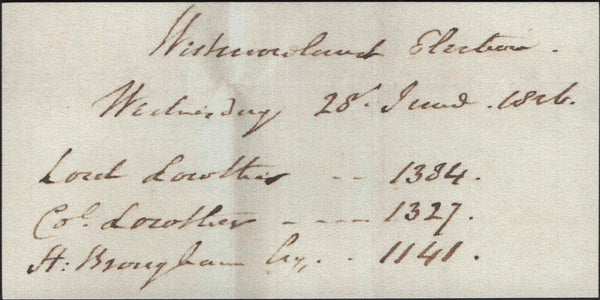 Westmorland Election.
Wednesday 28th June. 1826.
Lord Lowther -- 1384.
Col. Lowther --- 1327.
H: Brougham Esq. - 1141.